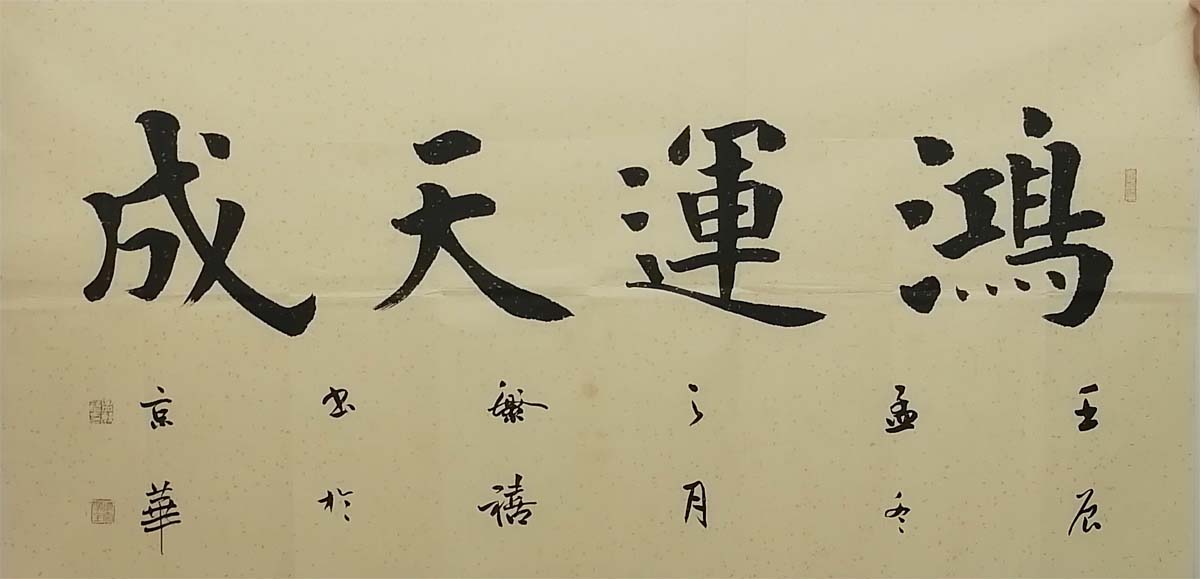 鴻運天成
壬辰
孟冬
之月
繁禧
書於
京華